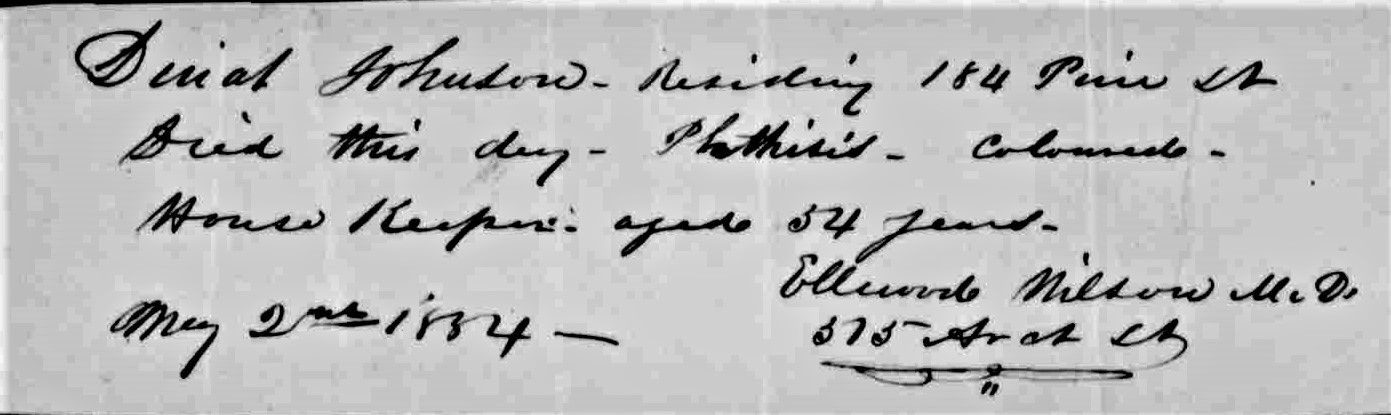 Dinah Johnson - Residing 184 Pine St
Died this day - Phthisis - Coloured -
House Keeper - aged 54 years -
Ellwood Wilson M.D.
May 2nd 1854 —
515 Arch St